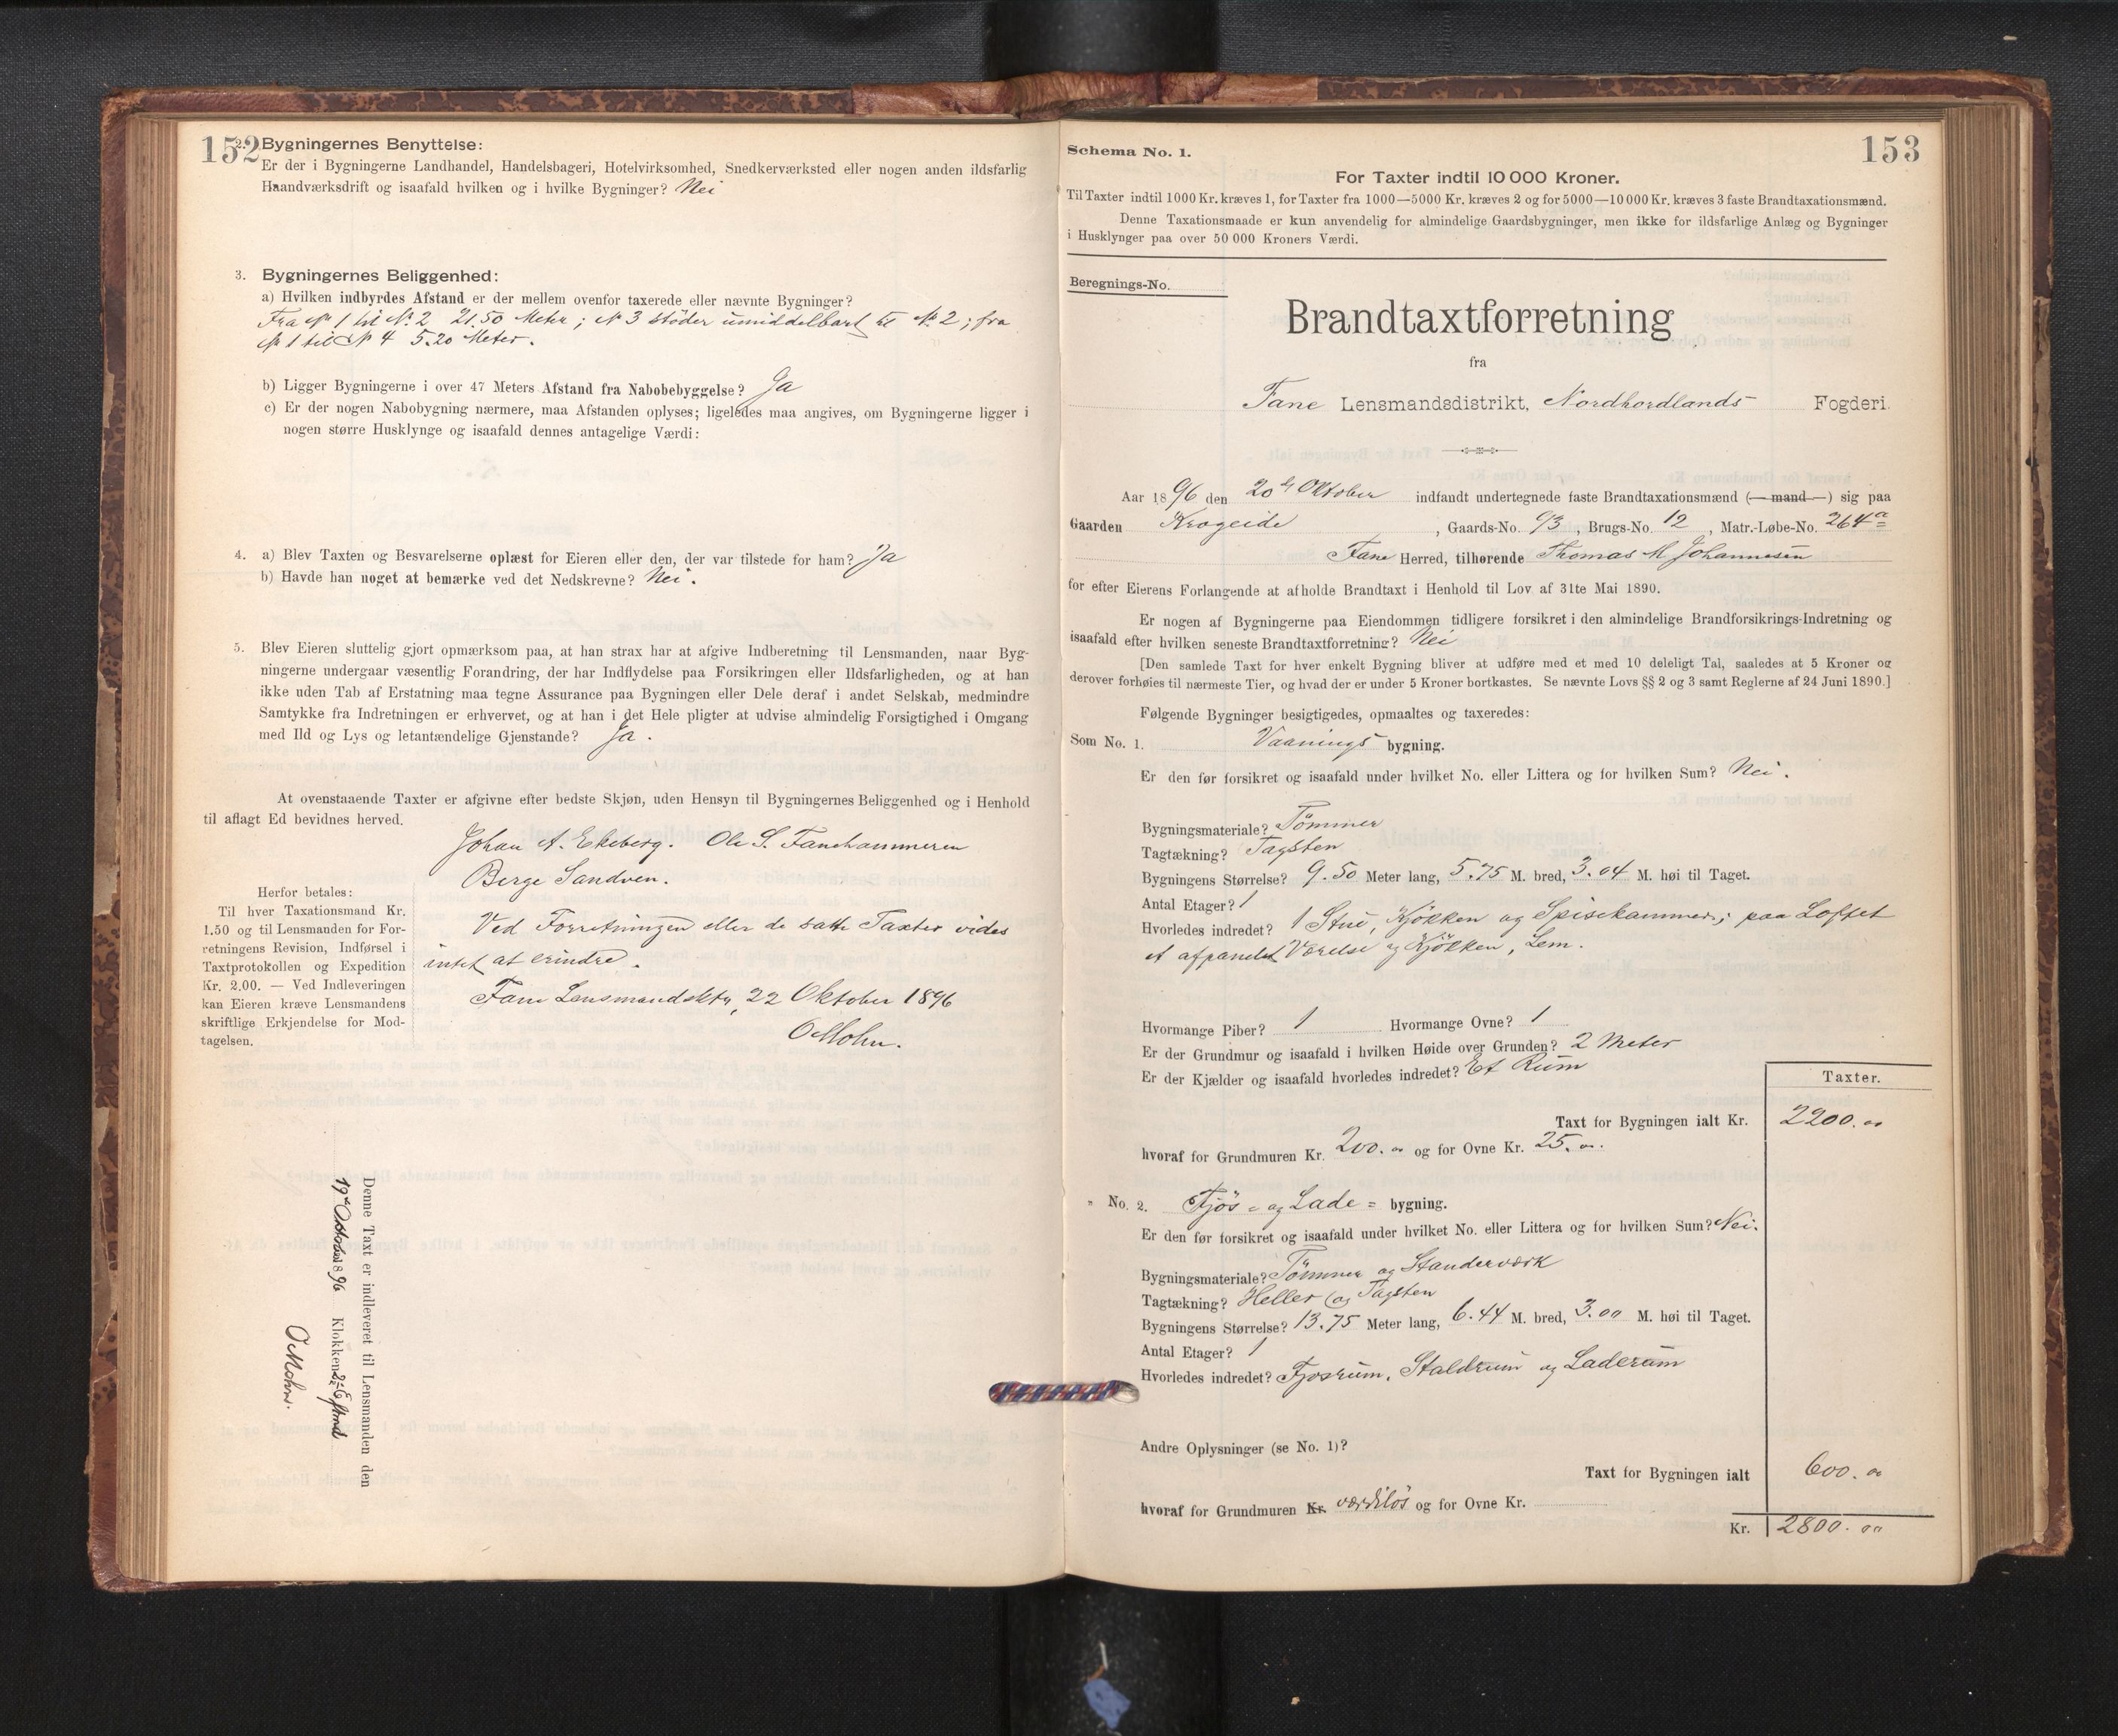 152
2. Bygningernes Benyttelse:
Er der i Bygningerne Landhandel, Handelsbageri, Hotelvirksomhed, Snedkerværksted eller nogen anden ildsfarlig
Haandværksdrift og isaafald hvilken og i hvilke Bygninger? Nei
3. Bygningernes Beliggenhed:
a) Hvilken indbyrdes Afstand er der mellem ovenfor taxerede eller nævnte Bygninger?
Fra No 1 til No. 2 21.50 Meter; No 3 støder umiddelbart til No. 2; fra
No 1 til No 4 5.20 Meter.
b) Ligger Bygningerne i over 47 Meters Afstand fra Nabobebyggelse? Ja
c) Er der nogen Nabobygning nærmere, maa Afstanden oplyses; ligeledes maa angives, om Bygningerne ligger i
nogen større Husklynge og isaafald dennes antagelige Værdi:
4. a) Blev Taxten og Besvarelserne oplæst for Eieren eller den, der var tilstede for ham? Ja
b) Havde han noget at bemærke ved det Nedskrevne? Nei.
5. Blev Eieren sluttelig gjort opmærksom paa, at han strax har at afgive Indberetning til Lensmanden, naar Byg-
ningerne undergaar væsentlig Forandring, der har Indflydelse paa Forsikringen eller Ildsfarligheden, og at han
ikke uden Tab af Erstatning maa tegne Assurance paa Bygningen eller Dele deraf i andet Selskab, medmindre
Samtykke fra Indretningen er erhvervet, og at han i det Hele pligter at udvise almindelig Forsigtighed i Omgang
med Ild og Lys og letantændelige Gjenstande? Ja.
At ovenstaaende Taxter er afgivne efter bedste Skjøn, uden Hensyn til Bygningernes Beliggenhed og i Henhold
til aflagt Ed bevidnes herved.
Johan A. Ekeberg. Ole S. Fanehammeren
Berge Sandven.
Herfor betales:
Til hver Taxationsmand Kr.
1.50 og til Lensmanden for For-
retningens Revision, Indførsel i
Taxtprotokollen og Expedition
Kr. 2.00. — Ved Indleveringen
kan Eieren kræve Lensmandens
skriftlige Erkjendelse for Mod-
tagelsen.
Ved Forretningen eller de satte Taxter vides
intet at erindre.
Fane Lensmandsktr, 22 Oktober 1896
O Mohn.
Denne Taxt er indleveret til Lensmanden den
19de Oktober 1896 Klokken 2 Eftmd
O Mohn.
153
Schema No. 1.
For Taxter indtil 10 000 Kroner.
Til Taxter indtil 1000 Kr. kræves 1, for Taxter fra 1000—5000 Kr. kræves 2 og for 5000—10 000 Kr. kræves 3 faste Brandtaxationsmænd.
Denne Taxationsmaade er kun anvendelig for almindelige Gaardsbygninger, men ikke for ildsfarlige Anlæg og Bygninger
i Husklynger paa over 50 000 Kroners Værdi.
Beregnings-No.
Brandtaxtforretning
fra
Fane Lensmandsdistrikt, Nordhordlands Fogderi.
Aar 1896 den 20de Oktober indfandt undertegnede faste Brandtaxationsmænd (— mand —) sig paa
Gaarden Krogeide, Gaards-No. 93, Brugs-No. 12, Matr.-Løbe-No. 264a
Fane Herred, tilhørende Thomas M Johannesen
for efter Eierens Forlangende at afholde Brandtaxt i Henhold til Lov af 31te Mai 1890.
Er nogen af Bygningerne paa Eiendommen tidligere forsikret i den almindelige Brandforsikrings-Indretning og
isaafald efter hvilken seneste Brandtaxtforretning? Nei
[Den samlede Taxt for hver enkelt Bygning bliver at udføre med et med 10 deleligt Tal, saaledes at 5 Kroner og
derover forhøies til nærmeste Tier, og hvad der er under 5 Kroner bortkastes. Se nævnte Lovs §§ 2 og 3 samt Reglerne af 24 Juni 1890.]
Følgende Bygninger besigtigedes, opmaaltes og taxeredes:
Som No. 1. Vaanings bygning.
Er den før forsikret og isaafald under hvilket No. eller Littera og for hvilken Sum? Nei.
Bygningsmateriale? Tömmer
Tagtækning? Tagsten
Bygningens Størrelse? 9.50 Meter lang, 5.75 M. bred, 3.04 M. høi til Taget.
Antal Etager? 1
Hvorledes indredet? 1 Stue, Kjökken og Spisekammer; paa Loftet
et afpanelet Værelse og Kjökken, Lem.
Hvormange Piber? 1 Hvormange Ovne? 1
Er der Grundmur og isaafald i hvilken Høide over Grunden? 2 Meter
Er der Kjælder og isaafald hvorledes indredet? Et Rum
Taxter.
Taxt for Bygningen ialt Kr. 2200.00
hvoraf for Grundmuren Kr. 200.00 og for Ovne Kr. 25.00.
" No. 2. Fjös- og Lade- bygning.
Er den før forsikret og isaafald under hvilket No. eller Littera og for hvilken Sum? Nei.
Bygningsmateriale? Tömmer og Standerværk
Tagtækning? Heller og Tagsten
Bygningens Størrelse? 13.75 Meter lang, 6.44 M. bred, 3.00 M. høi til Taget.
Antal Etager? 1
Hvorledes indredet? Fjosrum, Staldrum og Laderum
Andre Oplysninger (se No. 1)?
Taxt for Bygningen ialt 600.00
hvoraf for Grundmuren Kr. værdilös og for Ovne Kr.
Kr. 2800.00